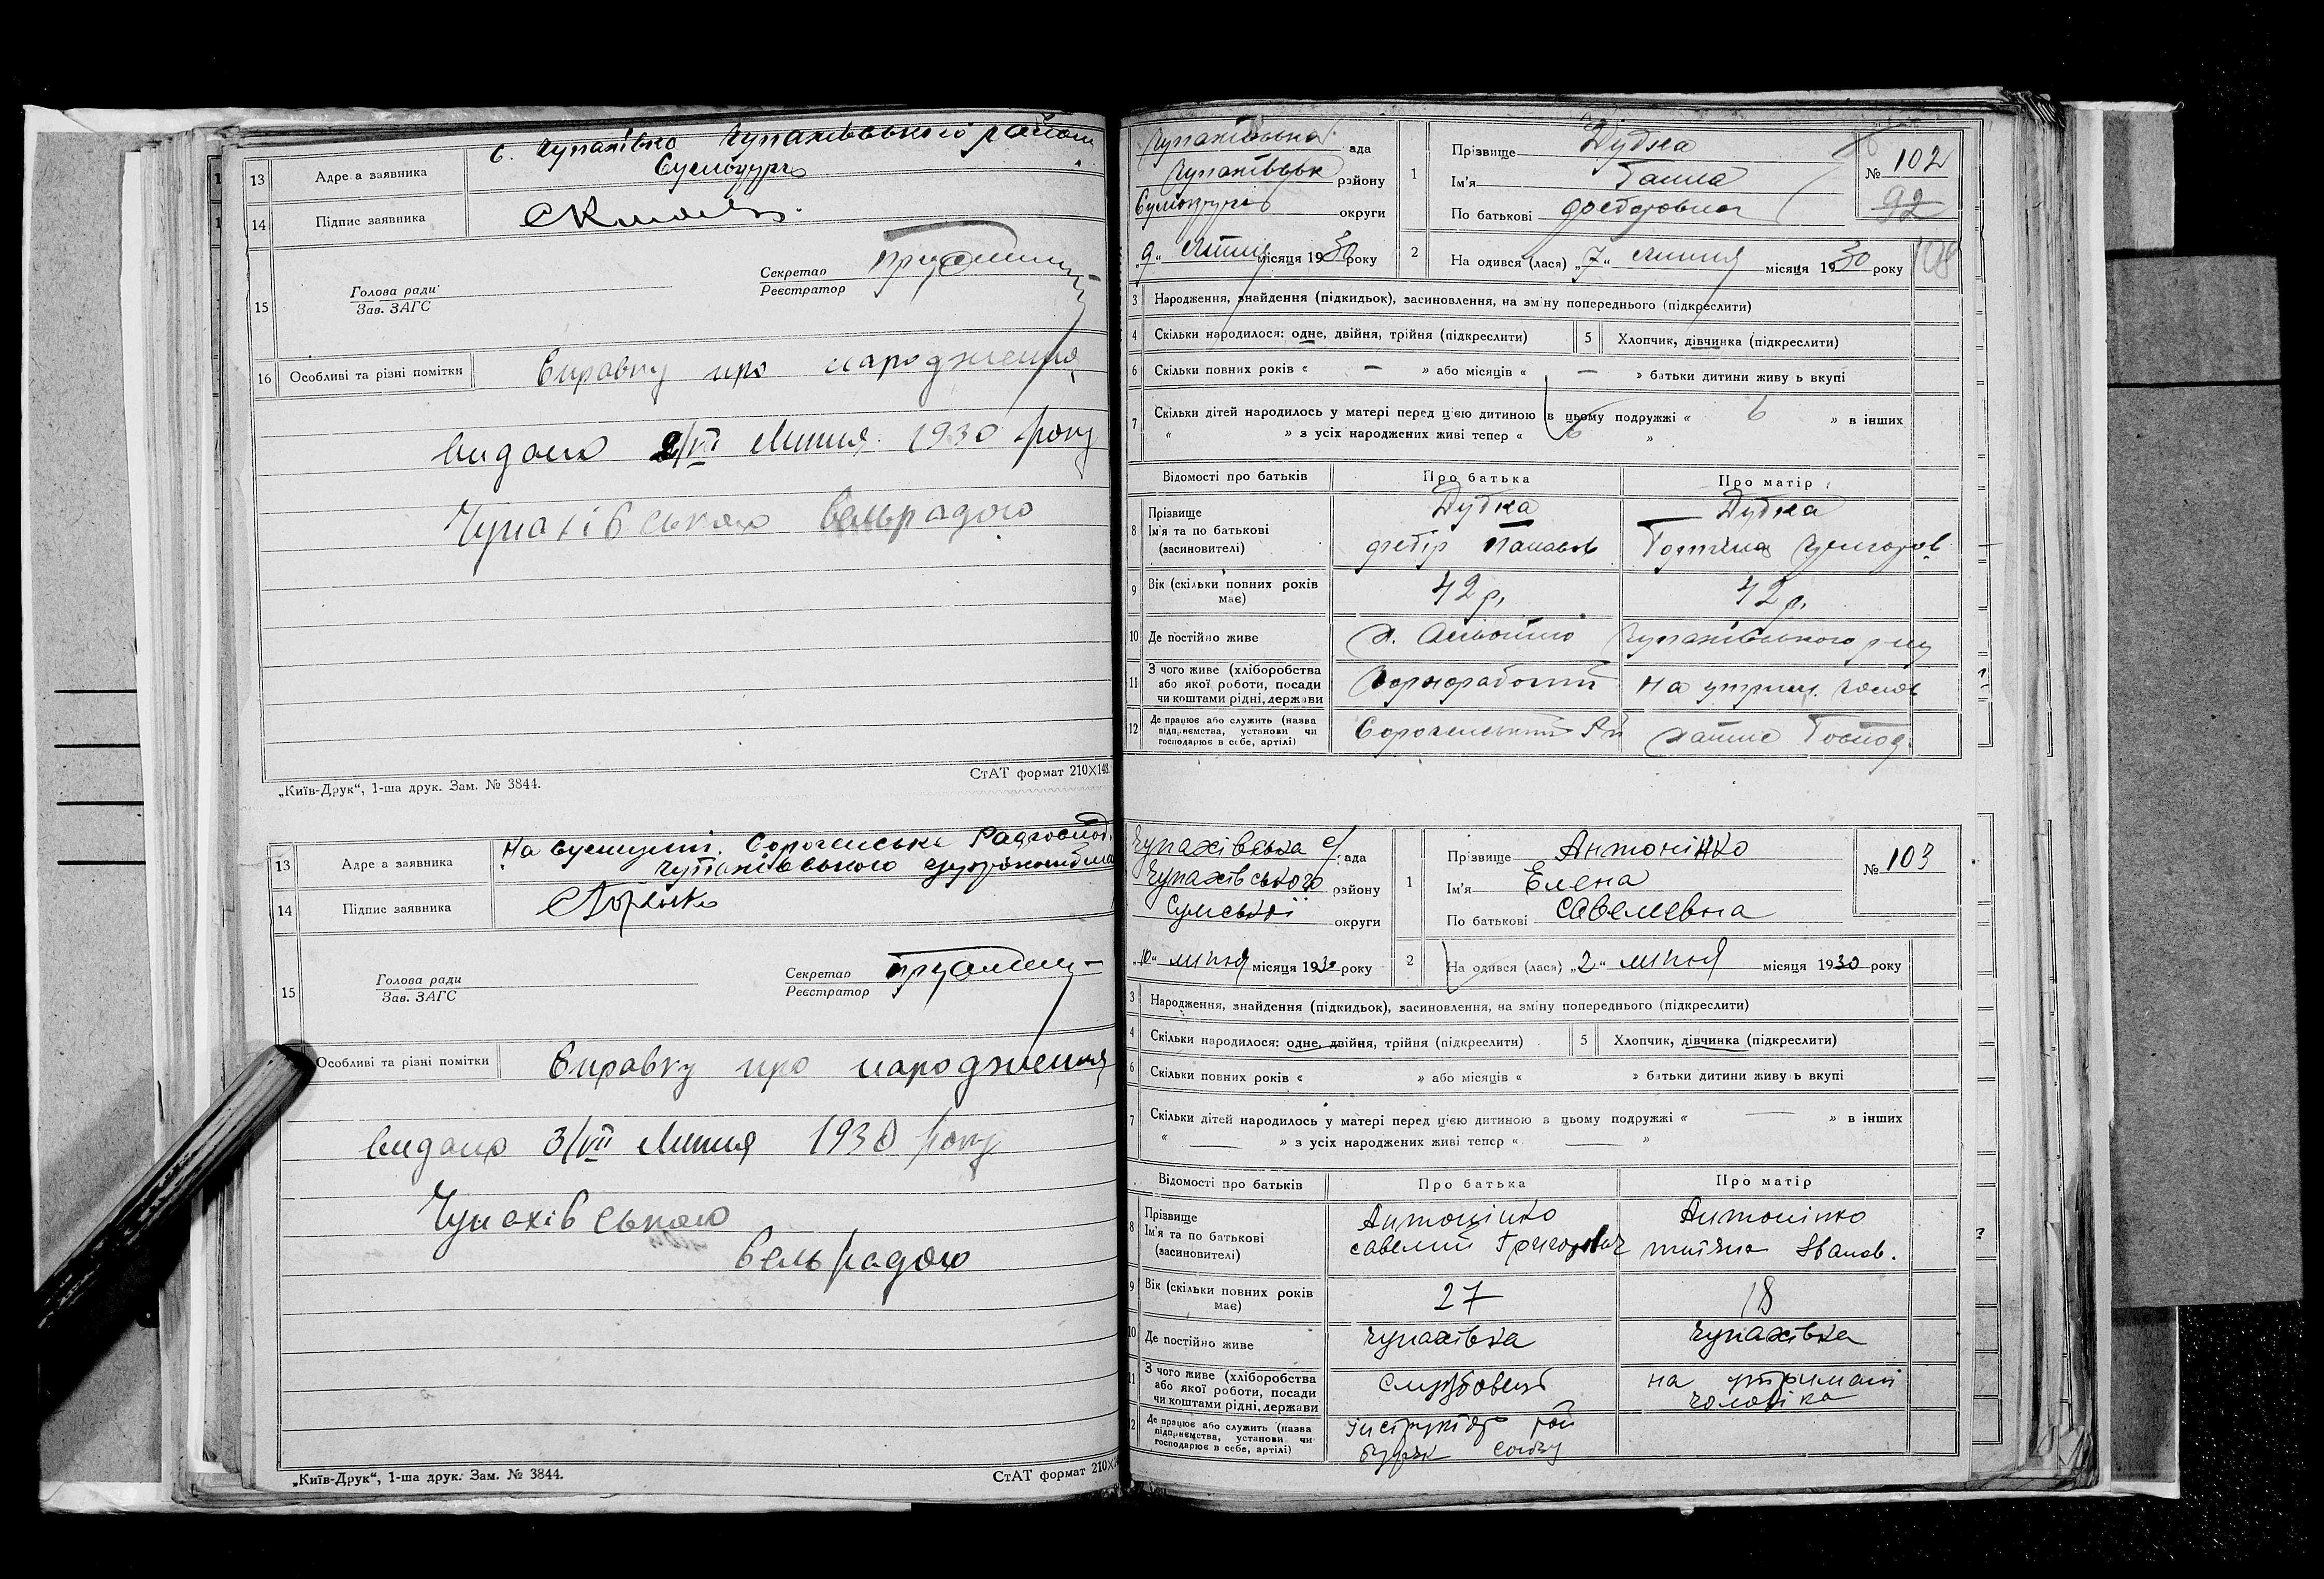 с. Чупахівка Чупахівського району
13 Адреса заявника Сумокруги
14 Підпис заявника
15 Голова ради
Зав. ЗАГС
Секретар
Реєстратор
16 Особливі та різні помітки Справку про народження
видано 2/VII Липня 1930 року
Чупахівською сельрадою
„Київ-Друк“, 1-ша друк. Зам. № 3844.
СтАТ формат 210×148
Сороченське Радгосп
13 Адреса заявника Чупахівського
14 Підпис заявника
15 Голова ради
Зав. ЗАГС
Секретар
Реєстратор
Особливі та різні помітки Справку про народження
видано 3/VII Липня 1930 року
Чупахівською
Сельрадою
„Київ-Друк“, 1-ша друк. Зам. № 3844.
СтАТ формат 210×
Чупахівська ада
Чупахівськ району
Сумокруги округи
„9“ Липня місяця 1930 року
1 Прізвище Дудка
Ім'я Ганна
По батькові
№ 102
92
2 На одився (лася) „7“ липня місяця 1930 року
3 Народження, знайдення (підкидьок), засиновлення, на зміну попереднього (підкреслити)
4 Скільки народилося: одне, двійня, трійня (підкреслити) 5 Хлопчик, дівчинка (підкреслити)
6 Скільки повних років « — » або місяців « — » батьки дитини живу ь вкупі
7 Скільки дітей народилось у матері перед цією дитиною в цьому подружжі « 6 » в інших
« » з усіх народжених живі тепер « 6 »
Відомості про батьків Про батька Про матір
8 Прізвище Дудка Дудка
Ім'я та по батькові
(засновителі)
9 Вік (скільки повних років має) 42 р. 42 р.
10 Де постійно живе Чупахівського р-ну
11 З чого живе (хліборобства або якої роботи, посади чи коштами рідні, держави Чорнорабочий на утрим. чолов
12 Де працює або служить (назва підприємства, установи чи господарює в себе, артілі) Сороченський
Чупахівська с/ ада
Чупахівського району
Сумської округи
„10“ липня місяця 1930 року
1 Прізвище Антонінко
Ім'я Елена
По батькові Савелевна
№ 103
2 На одився (лася) „2“ липня місяця 1930 року
3 Народження, знайдення (підкидьок), засиновлення, на зміну попереднього (підкреслити)
4 Скільки народилося: одне, двійня, трійня (підкреслити) 5 Хлопчик, дівчинка (підкреслити)
6 Скільки повних років « » або місяців « » батьки дитини живу ь вкупі
7 Скільки дітей народилось у матері перед цією дитиною в цьому подружжі « — » в інших
« — » з усіх народжених живі тепер « — »
Відомості про батьків Про батька Про матір
8 Прізвище Антонінко Антонінко
Ім'я та по батькові Савелий Григорович Іванов.
(засновителі)
9 Вік (скільки повних років має) 27 18
10 Де постійно живе Чупахівка Чупахівка
11 З чого живе (хліборобства або якої роботи, посади чи коштами рідні, держави Службовець на утриман чоловіка
12 Де працює або служить (назва підприємства, установи чи господарює в себе, артілі) Інструктор рай
буряк союзу